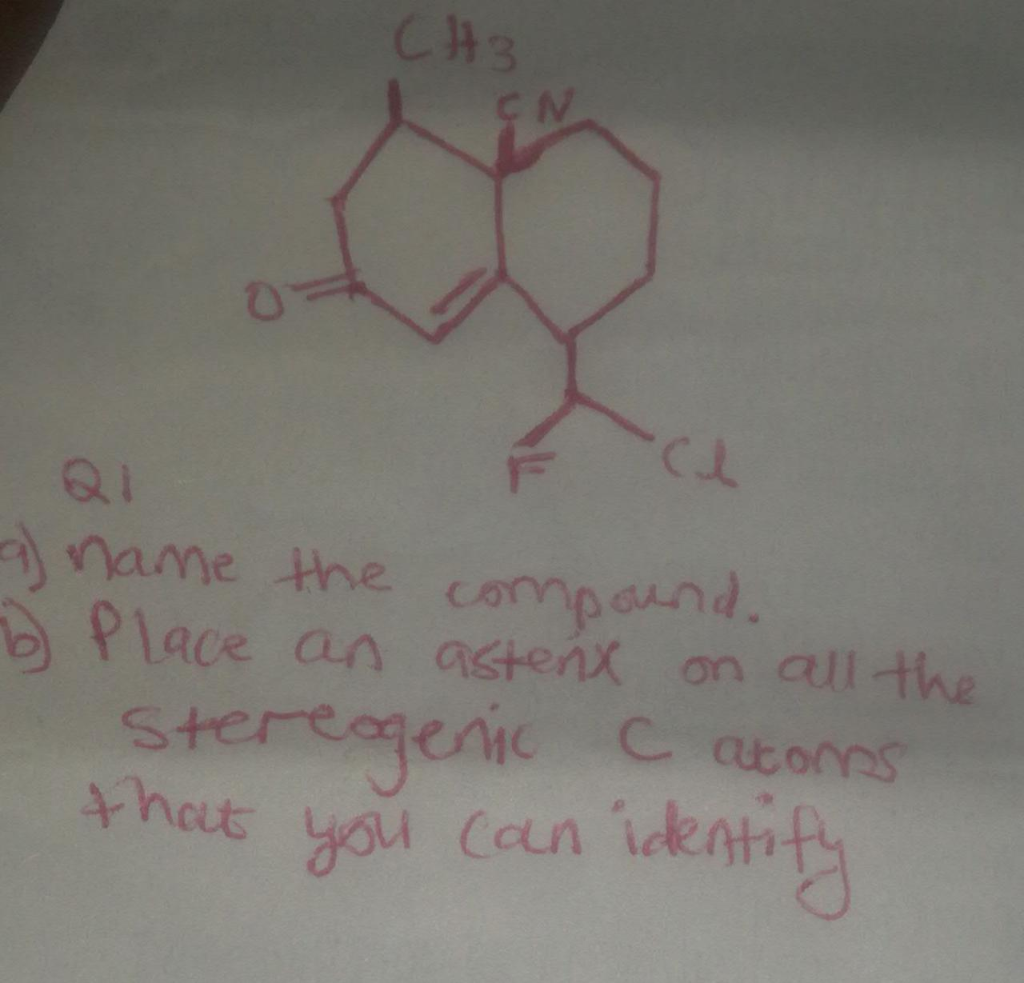 CH3
CN
O
F
Cl
Q1
a) Name the compound.
b) Place an asterix on all the
stereogenic C atoms
that you can identify